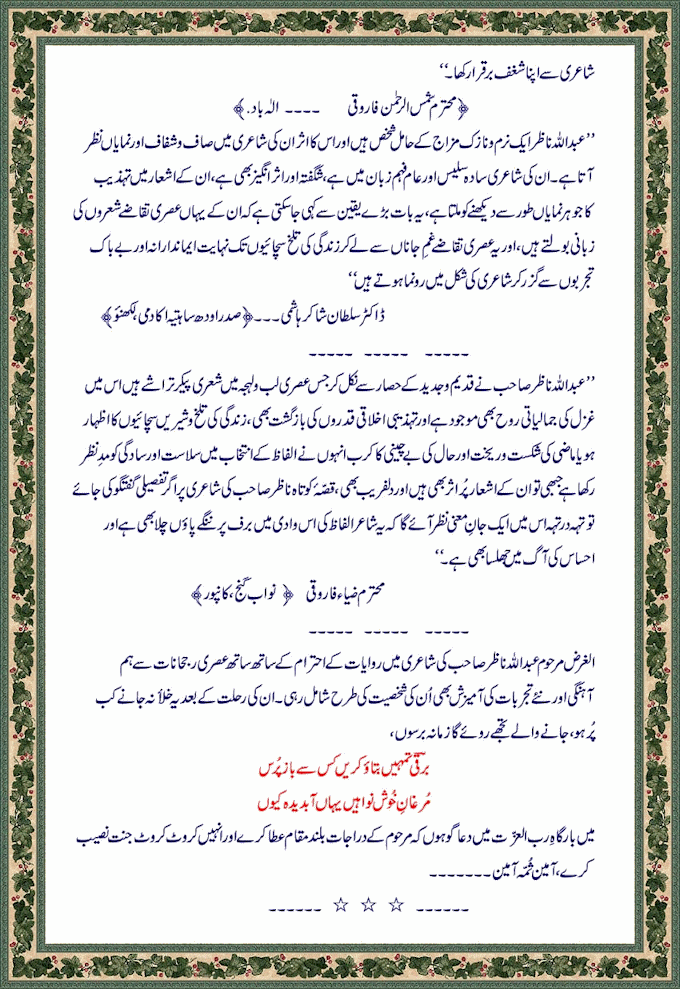 شاعری سے اپنا شغف برقرار رکھا۔‘‘
﴿محترم شمس الرحمٰن فاروقی ۔۔۔۔ الہٰ باد.﴾
’’عبداللہ ناظر ایک نرم و نازک مزاج کے حامل شخص ہیں اور اس کا اثر ان کی شاعری میں صاف و شفاف اور نمایاں نظر
آتا ہے۔ ان کی شاعری سادہ سلیس اور عام فہم زبان میں ہے، شگفتہ اور اثر انگیز بھی ہے، ان کے اشعار میں تہذیب
کا جوہر نمایاں طور سے دیکھنے کو ملتا ہے، یہ بات بڑے یقین سے کہی جا سکتی ہے کہ ان کے یہاں عصری تقاضے شعروں کی
زبانی بولتے ہیں، اور یہ عصری تقاضے غمِ جاناں سے لے کر زندگی کی تلخ سچائیوں تک نہایت ایماندارانہ اور بے باک
تجربوں سے گزر کر شاعری کی شکل میں رونما ہوتے ہیں‘‘
ڈاکٹر سلطان شاکر ہاشمی ۔۔۔﴿صدر اودھ ساہتیہ اکادمی، لکھنؤ﴾
۔۔۔۔۔ ۔۔۔۔۔ ۔۔۔۔۔
’’عبداللہ ناظر صاحب نے قدیم و جدید کے حصار سے نکل کر جس عصری لب و لہجہ میں شعری پیکر تراشے ہیں اس میں
غزل کی جمالیاتی روح بھی موجود ہے اور تہذیبی اخلاقی قدروں کی بازگشت بھی، زندگی کی تلخ و شیریں سچائیوں کا اظہار
ہو یا ماضی کی شکست و ریخت اور حال کی بے چینی کا کرب انہوں نے الفاظ کے انتخاب میں سلاست اور سادگی کو مدِ نظر
رکھا ہے جبھی تو ان کے اشعار پُر اثر بھی ہیں اور دلفریب بھی، قصّہ کوتاہ ناظر صاحب کی شاعری پر اگر تفصیلی گفتگو کی جائے
تو تہہ در تہہ اس میں ایک جانِ معنی نظر آئے گا کہ یہ شاعر الفاظ کی اس وادی میں برف پر ننگے پاؤں چلا بھی ہے اور
احساس کی آگ میں جھلسا بھی ہے۔‘‘
محترم ضیاء فاروقی ﴿ نواب گنج، کانپور﴾
۔۔۔۔۔ ۔۔۔۔۔ ۔۔۔۔۔
الغرض مرحوم عبداللہ ناظر صاحب کی شاعری میں روایات کے احترام کے ساتھ ساتھ عصری رجحانات سے ہم
آہنگی اور نئے تجربات کی آمیزش بھی اُن کی شخصیت کی طرح شامل رہی۔ ان کی رحلت کے بعد یہ خلأ نہ جانے کب
پُر ہو، جانے والے تجھے روئے گا زمانہ برسوں،
برقیؔ تمہیں بتاؤ کریں کس سے باز پُرس
مُرغانِ خُوش نوا ہیں یہاں آبدیدہ کیوں
میں بارگاہِ رب العزّت میں دعا گو ہوں کہ مرحوم کے دراجات بلند مقام عطا کرے اور انہیں کروٹ کروٹ جنت نصیب
کرے، آمین ثُمّہ آمین ۔۔۔۔۔۔۔
۔۔۔۔۔۔ ☆ ☆ ☆ ۔۔۔۔۔۔